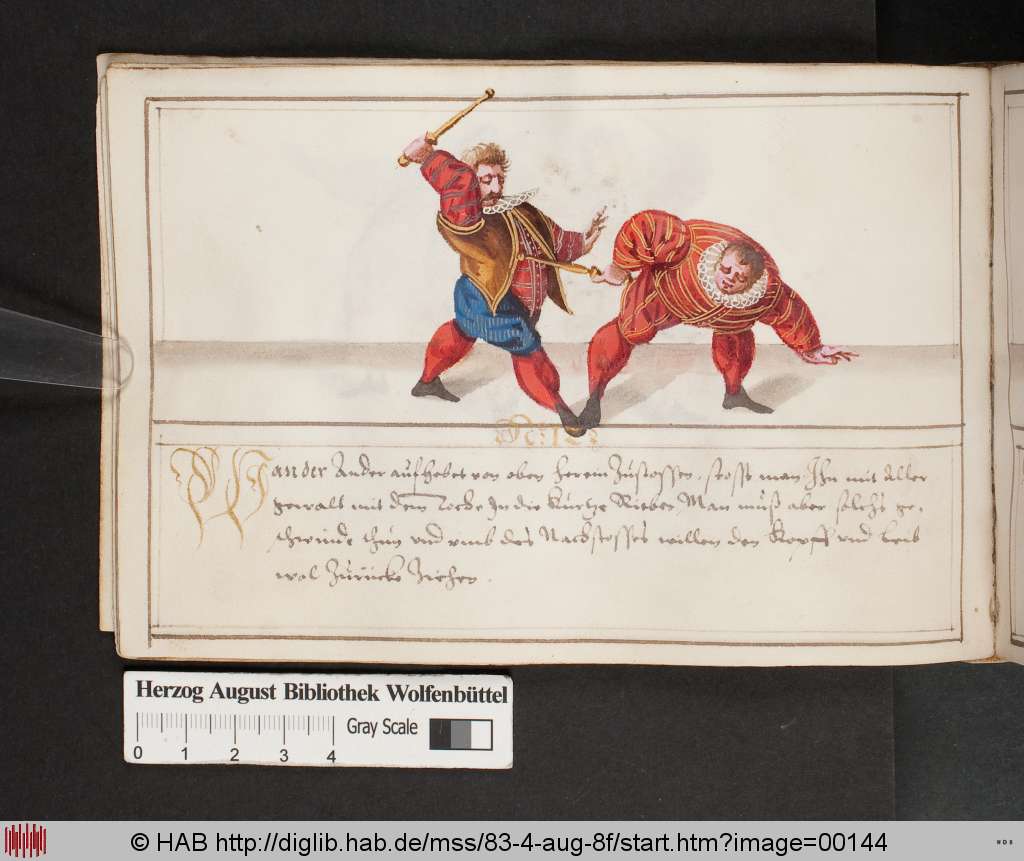 Wan der Ander auffhebet von oben herein Zustossen, stosst man Ihn mit Aller
gewalt mit dem Tocke In die Kurtze Rieben Man muß aber solchs ge,
schwinde thun vnd vmb des Nachstosses willen den Kopff vnd leib
wol Zurücke Ziehen.
Herzog August Bibliothek Wolfenbüttel
Gray Scale
0 1 2 3 4
© HAB http://diglib.hab.de/mss/83-4-aug-8f/start.htm?image=00144